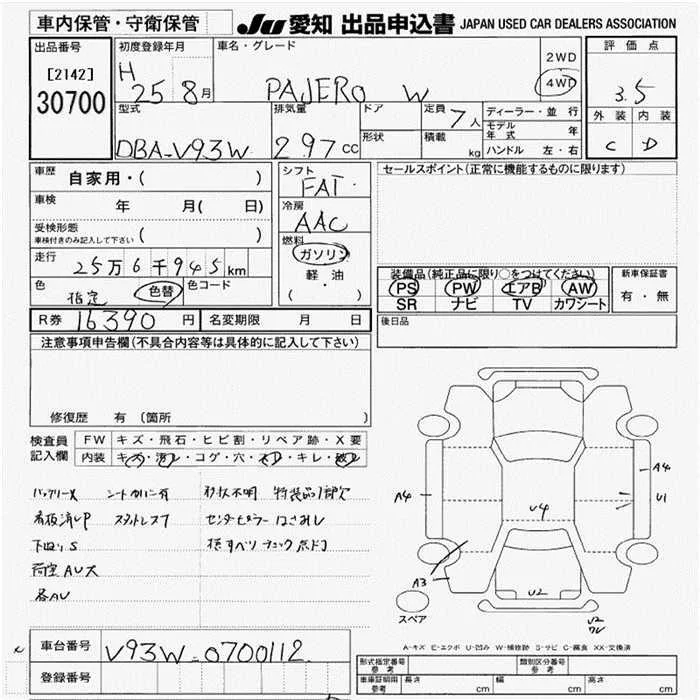 車内保管・守衛保管
JU 愛知 出品申込書 JAPAN USED CAR DEALERS ASSOCIATION
出品番号
[2142]
30700
初度登録年月
H 25 8月
車名・グレード
PAJERO W
2WD
4WD
評価点
3.5
外装 内装
C D
型式
DBA-V93W
排気量
2.97cc
ドア
形状
定員
7人
積載
kg
ディーラー・並行
モデル年式 年
ハンドル 左・右
車歴
自家用・( )
車検
年 月( 日)
受検形態
車検付きのみ記入して下さい ( )
走行
25万6千945km
色
指定 色替
色コード
シフト
FAT
冷房
AAC
燃料
ガソリン
軽油
( ・ )
セールスポイント(正常に機能するものに限ります)
装備品(純正品に限り○をつけてください)
PS PW エアB AW
SR ナビ TV カワシート
新車保証書
有・無
R券 16390円
名変期限 月 日
後日品
注意事項申告欄(不具合内容等は具体的に記入して下さい)
修復歴 有 (箇所 )
検査員
記入欄
FW キズ・飛石・ヒビ割・リペア跡・X要
内装
バッテリーX シートカバー有
スタットレス7
下廻りS
荷室AU大
各AU
形状不明
A4
U4
A4
U1
A3
U2
U2
スペア
A-キズ E-エクボ U-凹み W-補修跡 S-サビ C-腐食 XX-交換済
車台番号
V93W-0700112
登録番号
形式指定番号
参考
類別区分番号
参考
車庫証明用
参考
長さ cm
幅 cm
高さ cm